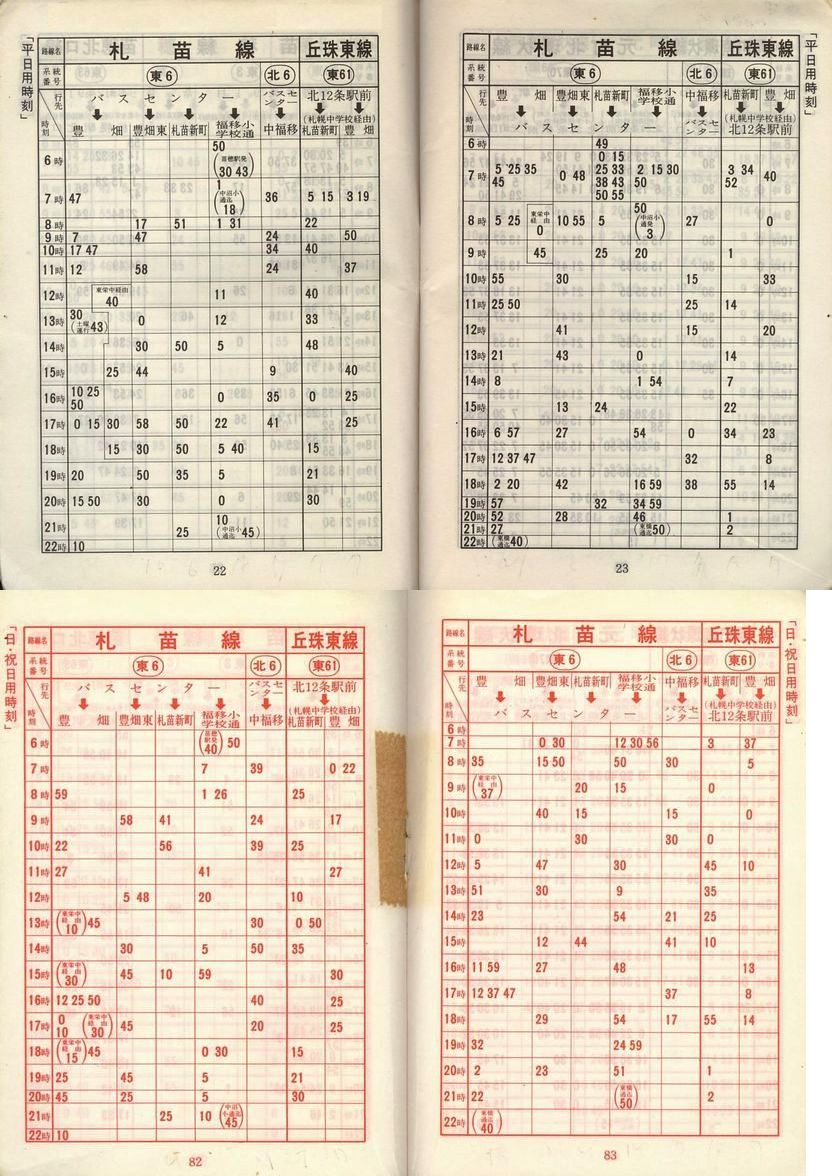 「平日用時刻」
路線名 札苗線 丘珠東線
系統番号 東6 北6 東61
行先 バスセンター バスセンター 北12条駅前
(札幌中学校経由)
時刻 豊畑 豊畑東 札苗新町 福移小学校通 中福移 札苗新町 豊畑
6時 50 (苗穂駅発 30 43)
7時 47 1 (中沼小通迄 18) 36 5 15 3 19
8時 17 51 1 31 22
9時 7 47 24 50
10時 17 47 34 40
11時 12 58 24 37
12時 東栄中経由 40 11 40
13時 30 (土曜運行 43) 0 12 33
14時 30 50 5 48
15時 25 44 9 40
16時 10 25 50 0 35 0 25
17時 0 15 30 58 50 22 41 25
18時 15 30 50 5 40 15
19時 20 50 35 5 21
20時 15 50 30 0 30
21時 25 10 (中沼小通迄 45)
22時 10
22
「平日用時刻」
路線名 札苗線 丘珠東線
系統番号 東6 北6 東61
行先 豊畑 豊畑東 札苗新町 福移小学校通 中福移 札苗新町 豊畑
(札幌中学校経由)
時刻 バスセンター バスセンター 北12条駅前
6時 49
7時 5 25 35 45 0 48 0 15 25 33 38 43 50 55 2 15 30 50 3 34 52 40
8時 5 25 東栄中経由 0 10 55 5 50 (中沼小通発 3) 27 0
9時 45 25 20 1
10時 55 30 15 33
11時 25 50 25 14
12時 41 15 20
13時 21 43 0 14
14時 8 1 54 7
15時 13 24 22
16時 6 57 27 54 0 34 23
17時 12 37 47 32 8
18時 2 20 42 16 59 38 55 14
19時 57 32 34 59
20時 52 28 46 1
21時 27 (東橋通迄 50) 2
22時 (東橋通迄 40)
23
「日・祝日用時刻」
路線名 札苗線 丘珠東線
系統番号 東6 北6 東61
行先 バスセンター バスセンター 北12条駅前
(札幌中学校経由)
時刻 豊畑 豊畑東 札苗新町 福移小学校通 中福移 札苗新町 豊畑
6時 (苗穂駅発 40) 50
7時 7 39 0 22
8時 59 1 26 25
9時 58 41 24 17
10時 22 56 39 25
11時 27 41 27
12時 5 48 20 10
13時 (東栄中経由 10) 45 30 0 50
14時 30 5 50 35
15時 (東栄中経由 30) 45 10 59 30
16時 12 25 50 40 25
17時 0 10 (東栄中経由 30) 45 20 25
18時 (東栄中経由 15) 45 0 30 15
19時 25 45 5 21
20時 45 25 5 30
21時 25 10 (中沼小通迄 45)
22時 10
82
「日・祝日用時刻」
路線名 札苗線 丘珠東線
系統番号 東6 北6 東61
行先 豊畑 豊畑東 札苗新町 福移小学校通 中福移 札苗新町 豊畑
(札幌中学校経由)
時刻 バスセンター バスセンター 北12条駅前
6時
7時 0 30 12 30 56 3 37
8時 35 15 50 50 30 5
9時 (東栄中経由 37) 20 15 0
10時 40 15 15 0
11時 0 30 30 0
12時 5 47 30 45 10
13時 51 30 9 35
14時 23 54 21 25
15時 12 44 41 10
16時 11 59 27 48 13
17時 12 37 47 37 8
18時 29 54 17 55 14
19時 32 24 59
20時 2 23 51 1
21時 22 (東橋通迄 50) 2
22時 (東橋通迄 40)
83